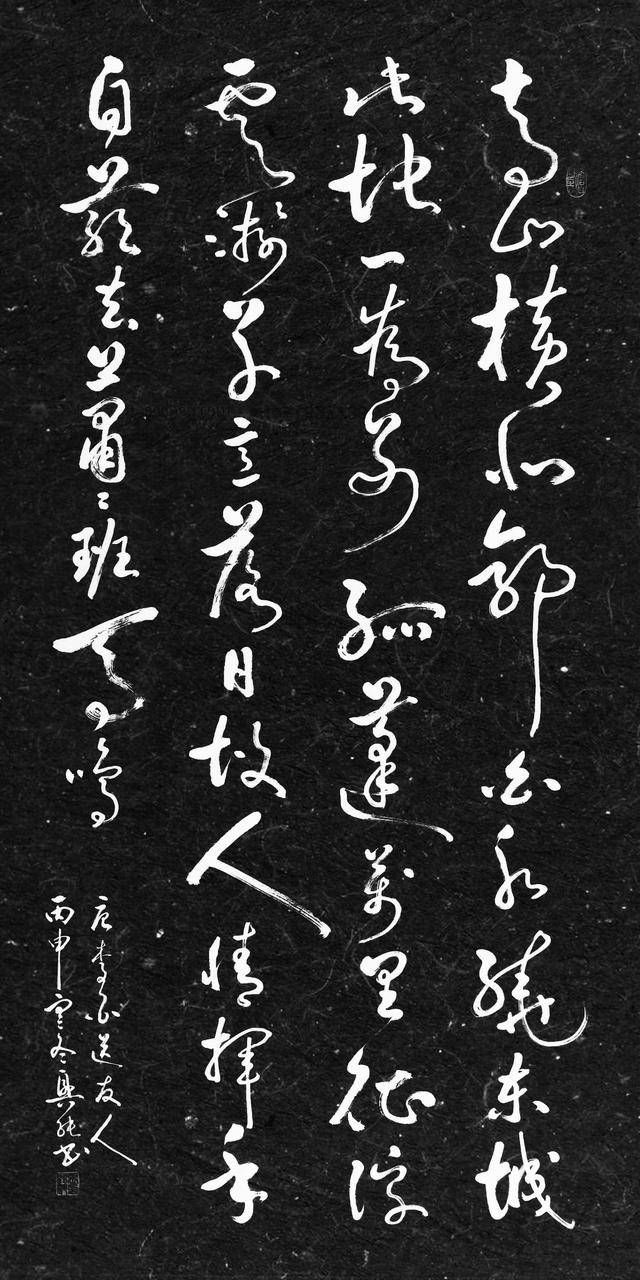 青山橫北郭白水繞东城
此地一為別孤蓬萬里征浮
雲游子意落日故人情揮手
自茲去蕭々班馬鳴
唐李白送友人
丙申寒冬興书